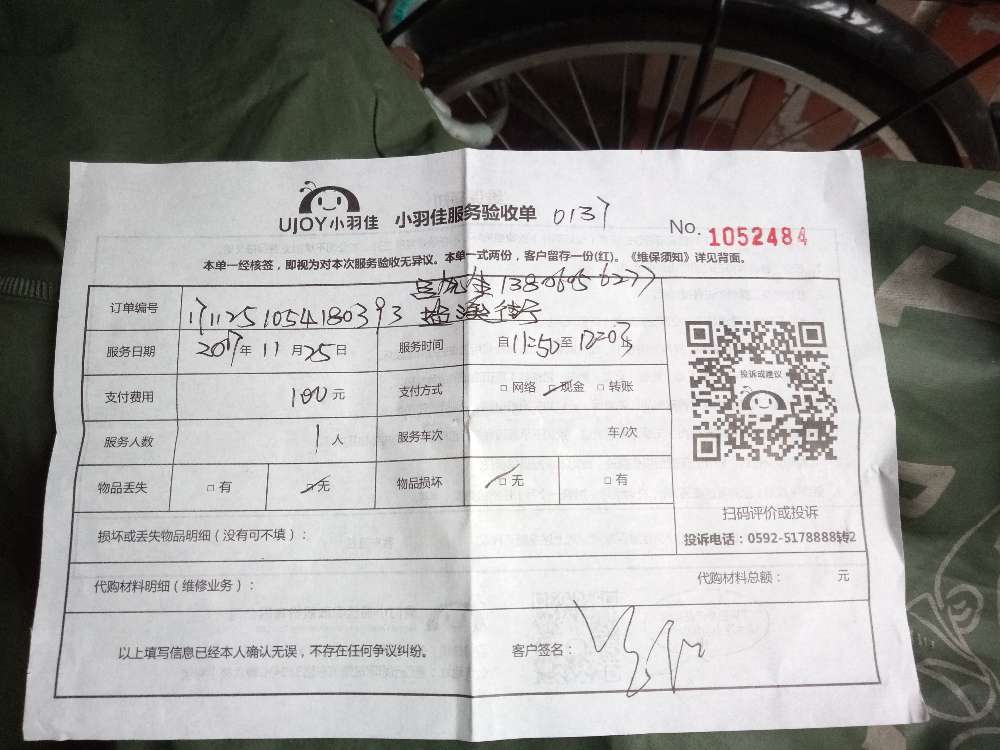 UJOY小羽佳 小羽佳服务验收单 0137
No. 1052484
本单一经核签，即视为对本次服务验收无异议。本单一式两份，客户留存一份(红)。《维保须知》详见背面。
订单编号 1711251054180393
服务日期 2017年11月25日 服务时间 自11:50至12:03
支付费用 100元 支付方式 □网络 现金 □转账
服务人数 1人 服务车次 车/次
物品丢失 □有 无 物品损坏 □无 □有
投诉或建议
扫码评价或投诉
损坏或丢失物品明细（没有可不填）：
投诉电话：0592-5178888转2
代购材料明细（维修业务）： 代购材料总额： 元
以上填写信息已经本人确认无误，不存在任何争议纠纷。 客户签名：